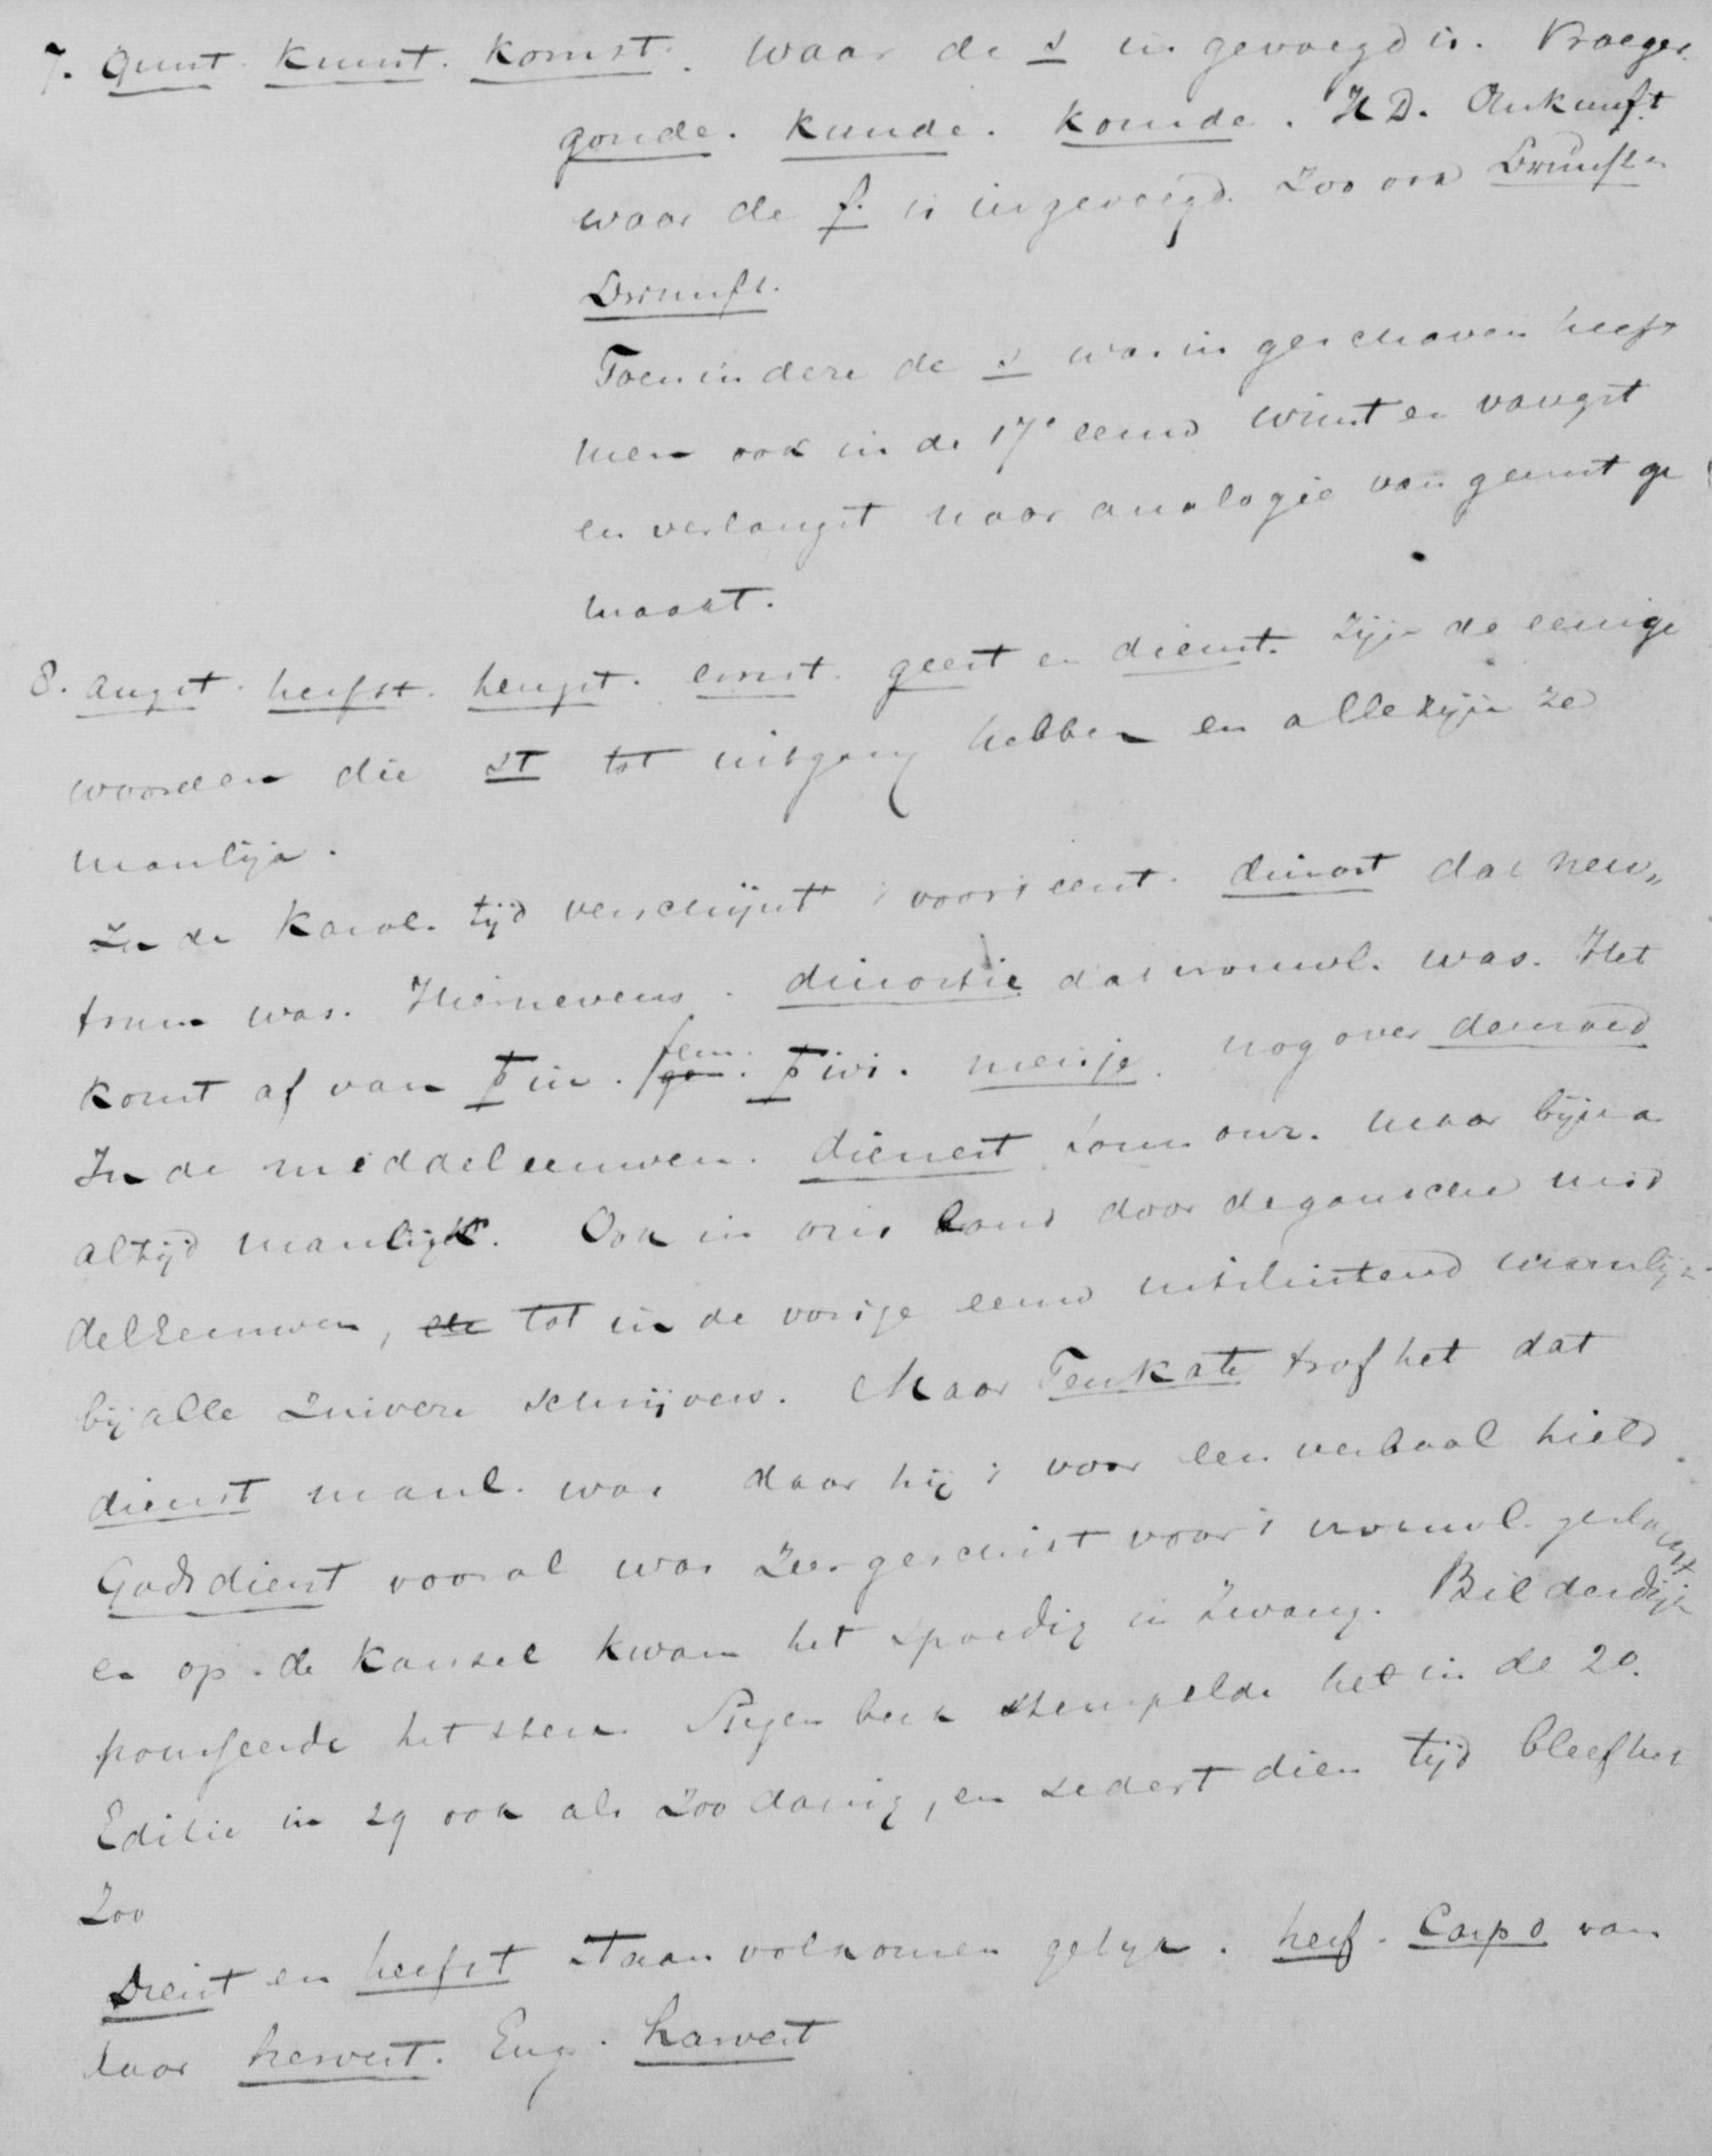 7. gunst. kunst. komst. waar de s in gevoegd is. Vroeger
gonde. kunde. komde. H D. Ankunft
waar de f. is ingevoegd. Zoo ook Brunft en
Brunft.
Toen in deze de s was in geschoven heeft
men ook in de 17e eeuw winst en vangst
en verlangst naar analogie van gunst ge
maakt.
8. angst. herfst. hengst. ernst. geest en dienst. Zijn de eenige
woorden die st tot uitgang hebben en alle zijn ze
manlijk.
In de Karol. tijd verschijnt voor 't eerst. dionost dat neu„
trum was. Hiernevens. dinostie dat vrouwl. was. Het
komt af van þiu. fem. þivi. meisje. nog over demoed
In de middeleeuwen. dienest soms onz. maar bijna
altijd manlijk. Ook in ons land door de gansche mid
deleeuwen, tot in de vorige eeuw uitsluitend manlijk
bij alle zuivere schrijvers. Maar Tenkate trof het dat
dienst manl. was daar hij 't voor een verbaal hield.
Godsdienst vooral was zeer geschikt voor 't vrouwl. geslacht
en op de kansel kwam het spoedig in zwang. Bilderdijk
het sterk. Siegenbeek stempelde het in de 20.
Editie in 29 ook als zoodanig, en sedert dien tijd bleef het
Zoo
Dienst en herfst staan volkomen gelijk. herf. Carpo van
daar hervest. Eng. harvest